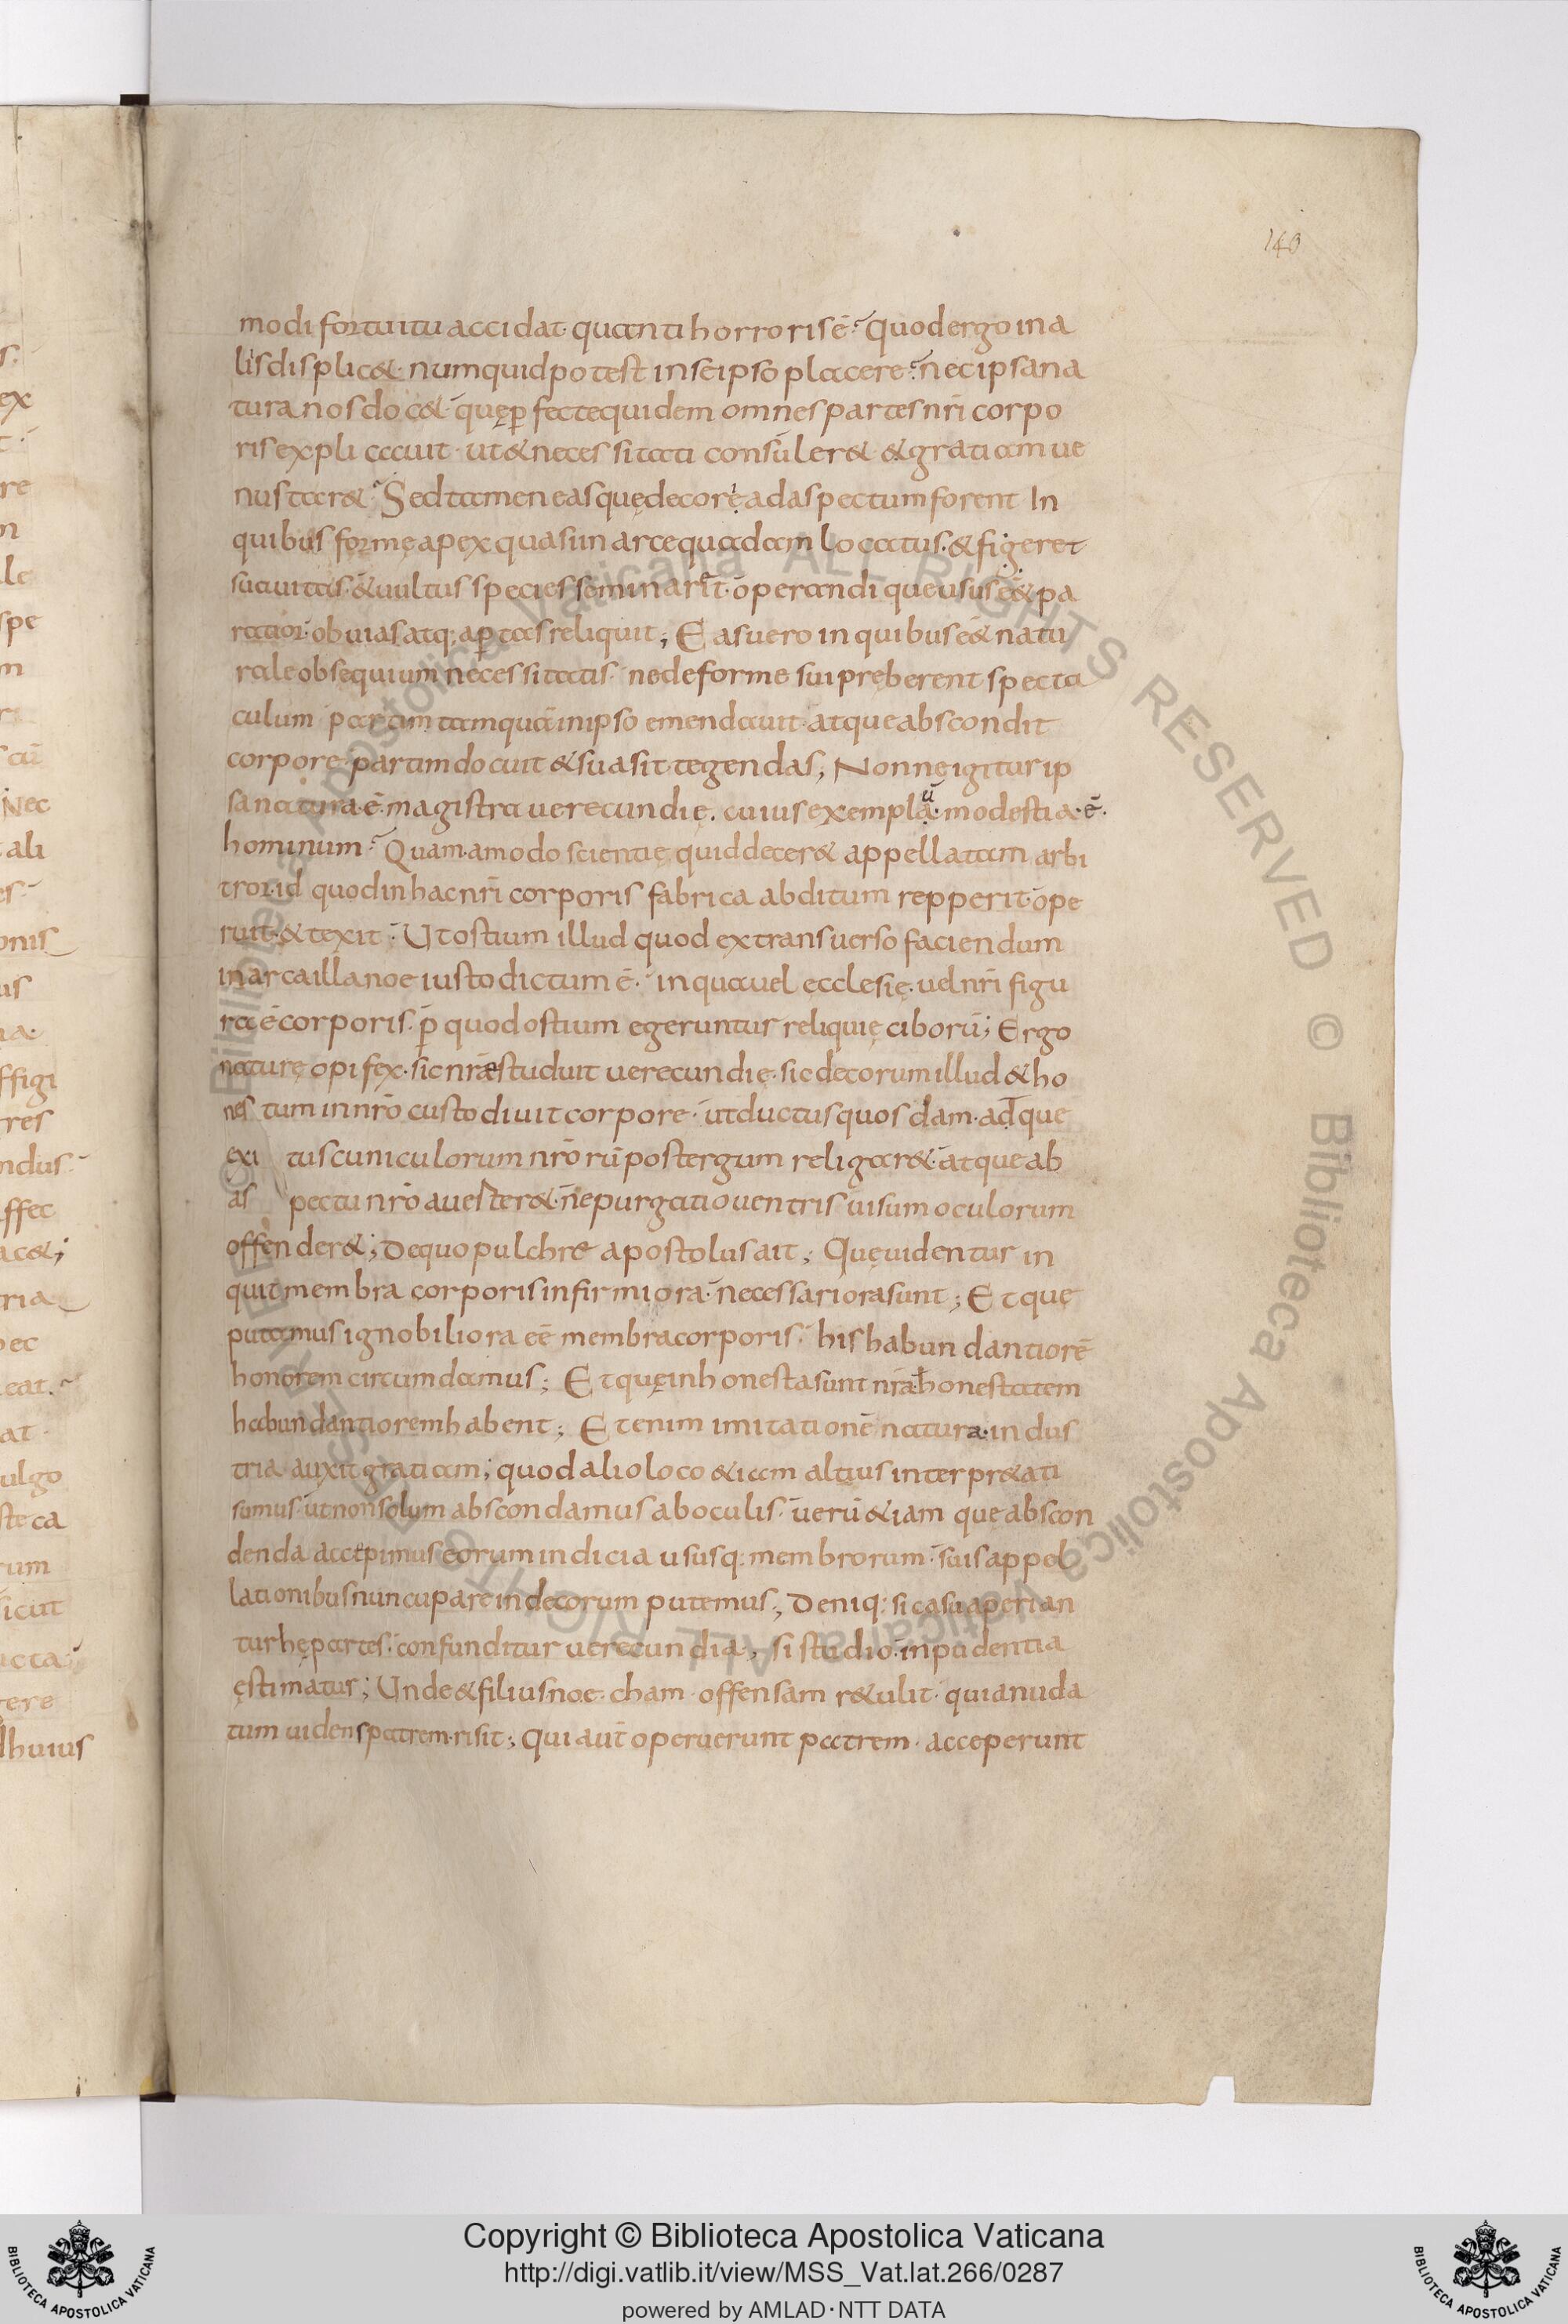 140
modi fortuitu accidat· quanti horroris ē? Quod ergo in a
liis displic&· numquid potest in seipso placere? nec ipsa na
tura nos doc&· quę ꝑfecte quidem omnes partes nrī corpo
ris explicauit· ut & necessitati consuler& & gratiam ue
nustar&· Sed tamen eas quę decorę ad aspectum forent In
quibus formę apex quasi in arce quadam locatus· & figeret
suauitas· & uultus species· seminarēt· operandi que usus eēt pa
ratior· obuias atq; aꝑtas reliquit; Eas uero in quibus eēt natu
rale obsequium necessitatis· ne deforme sui pręberent specta
culum· partim tamquā in ipso emendauit· atque abscondit
corpore· partim docuit & suasit tegendas; Nonne igitur ip
sa natura· ē· magistra uerecundię· cuius exemplū· modestia· ē·
hominum? Quam· a modo scientię quid decer& appellatam arbi
tror· id quod in hac nrī corporis fabrica abditum repperit· ope
ruit· & texit· Ut ostium illud quod ex transuerso faciendum
in arca illa noe iusto dictum ē· in qua uel ecclesię· uel nrī figu
ra ē corporis· ꝑ quod ostium egeruntur reliquię ciborū; Ergo
naturę opifex· sic nrāe studuit uerecundię· sic decorum illud & ho
nestum in nrō custodiuit corpore· ut ductus quosdam· adque
exitus cuniculorum nrōrū post ergum religar&· atque ab
aspectu nrō auerter&· ne purgatio uentris uisum oculorum
offender&; De quo pulchre apostolus ait; Quę uidentur in
quit membra corporis infirmiora· necessariora sunt; Et quę
putamus ignobiliora eē membra corporis· his habundantiorē
honorem circumdamus; Et quę inhonesta sunt nrā honestatem
habundantiorem habent; Etenim imitationē natura· indus
tria auxit gratiam; quod alio loco &iam altius interpr&ati
sumus· ut non solum abscondamus ab oculis· uerū &iam quę abscon
denda accepimus eorum indicia ususq; membrorum· suis appel
lationibus nuncupare indecorum putemus; Deniq; si casu aperian
tur hę partes· confunditur uerecundia; si studio· inpudentia
ęstimatur; Unde & filius noe· cham· offensam r&ulit· quia nuda
tum uidens patrem· risit; Qui aūt operuerunt patrem· acceperunt
Copyright © Biblioteca Apostolica Vaticana
http://digi.vatlib.it/view/MSS_Vat.lat.266/0287
powered by AMLAD·NTT DATA